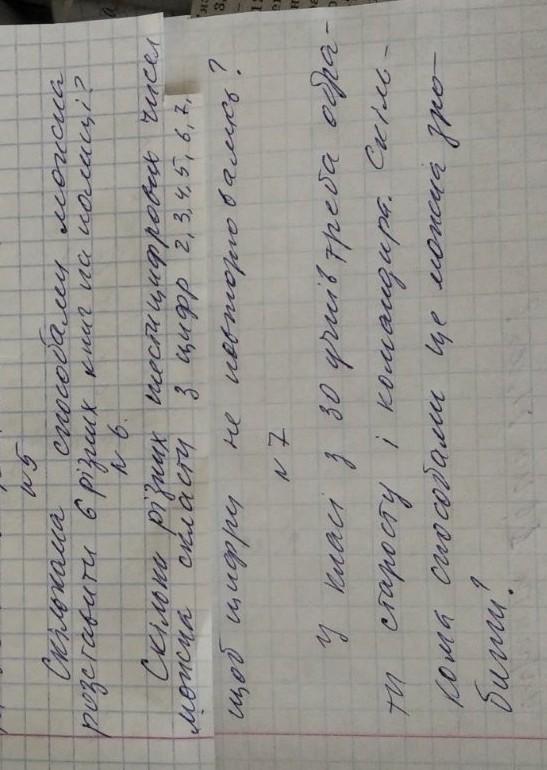 №5
Скількома способами можна
розставити 6 різних книг на полиці?
№6.
Скільки різних шестицифрових чисел
можна скласти з цифр 2,3,4,5,6,7,
щоб цифри не повторювались?
№7
У класі з 30 учнів треба обра-
ти старосту і командира. Скіль-
кома способами це можна зро-
бити?